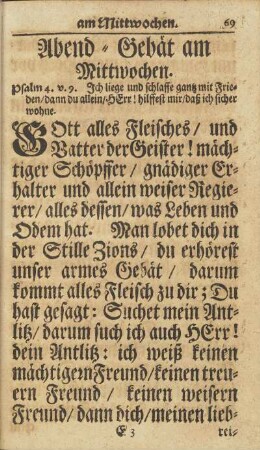 am Mittwochen. 69
Abend-Gebät am
Mittwochen.
Psalm 4. v. 9. Ich liege und schlaffe gantz mit Frie-
den/dann du allein/HErr! hilffest mir/daß ich sicher
wohne.
GOtt alles Fleisches/ und
Vatter der Geister! mäch-
tiger Schöpffer/ gnädiger Er-
halter und allein weiser Regie-
rer/ alles dessen/ was Leben und
Odem hat. Man lobet dich in
der Stille Zions/ du erhörest
unser armes Gebät/ darum
kommt alles Fleisch zu dir; Du
hast gesagt: Suchet mein Ant-
litz/ darum such ich auch HErr!
dein Antlitz: ich weiß keinen
mächtigern Freund/ keinen treu-
ern Freund/ keinen weisern
Freund/ dann dich/ meinen lieb-
E 3 rei-